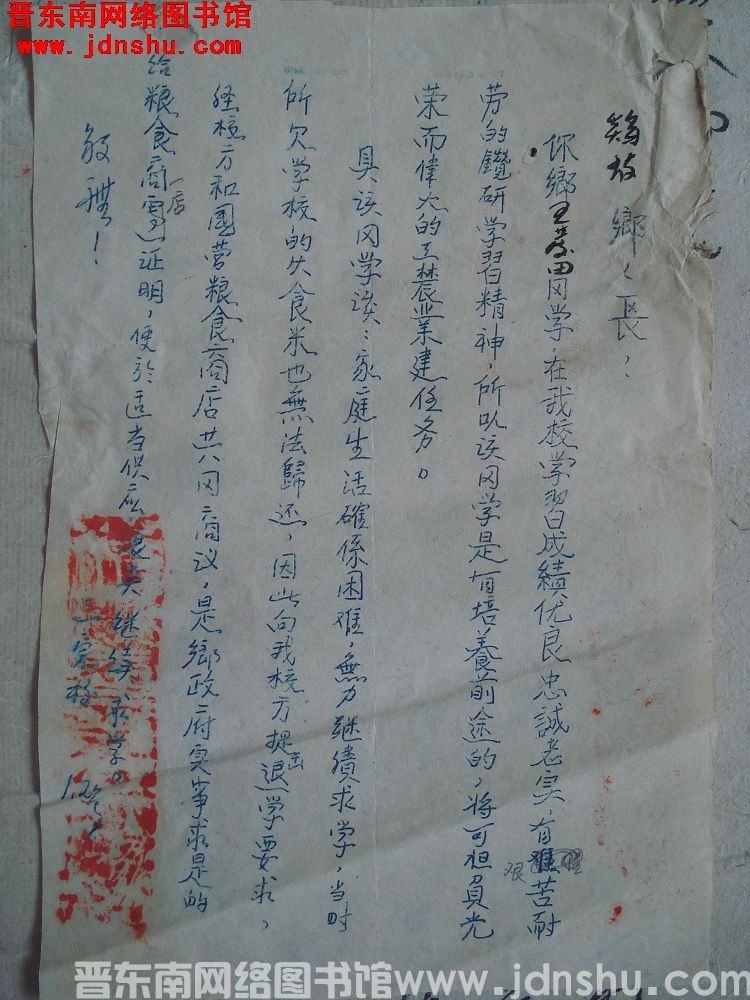 晋东南网络图书馆
www.jdnshu.com
鄉〻長：
你鄉王 田同学，在我校学習成績优良，忠誠老实，有艰苦耐
劳的鑽研学習精神，所以该同学是有培養前途的，将可担負光
荣而偉大的工農業建任务。
具该同学谈：家庭生活確係困难，無力继續求学，当时
所欠学校的伙食米也無法歸还，因此向我校方提出退学要求，
经校方和国营粮食商店共同商议，是鄉政府实事求是的
给粮食商店 证明，便於适当供应 其继续求学。
敬礼！
晋东南网络图书馆 www.jdnshu.com